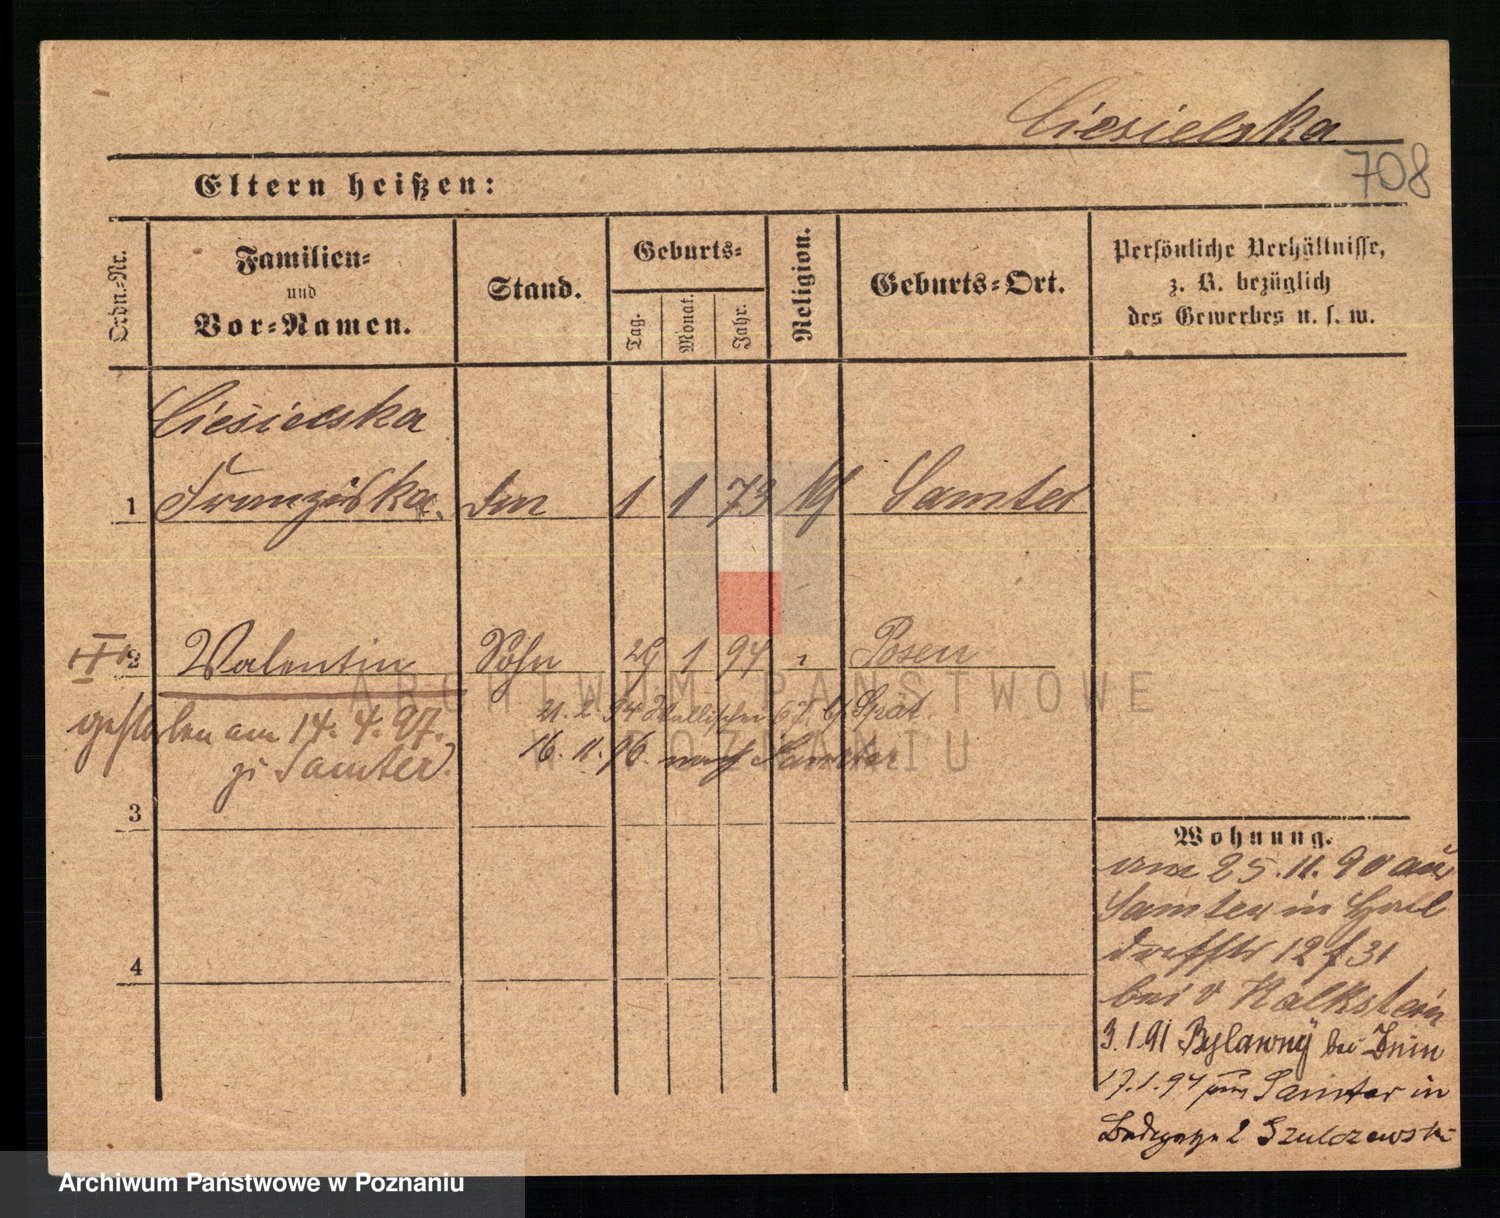 Ciesielska
708
Eltern heißen:
Ordn.-Nr.
Familien-
und
Vor-Namen.
Stand.
Geburts-
Tag.
Monat.
Jahr.
Religion.
Geburts-Ort.
Persönliche Verhältnisse,
z. B. bezüglich
des Gewerbes u. s. w.
Ciesielska
1 Franziska 1 1 73 Samter
2 Valentin Sohn 29 1 94 Posen
gestorben am 14. 4. 97.
zu Samter.
21. 2. 94 Wallischei 67 b Spät
16. 11. 96. nach Samter
3
4
Wohnung.
von 25. 11. 90 aus
Samter in Halb
dorfstr 12 f 31
bei v Kalkstein
3. 1. 91 Bylawny bei Dnin
17. 1. 94 Samter in
2 Szulczewski
ARCHIWUM PAŃSTWOWE
W POZNANIU
Archiwum Państwowe w Poznaniu